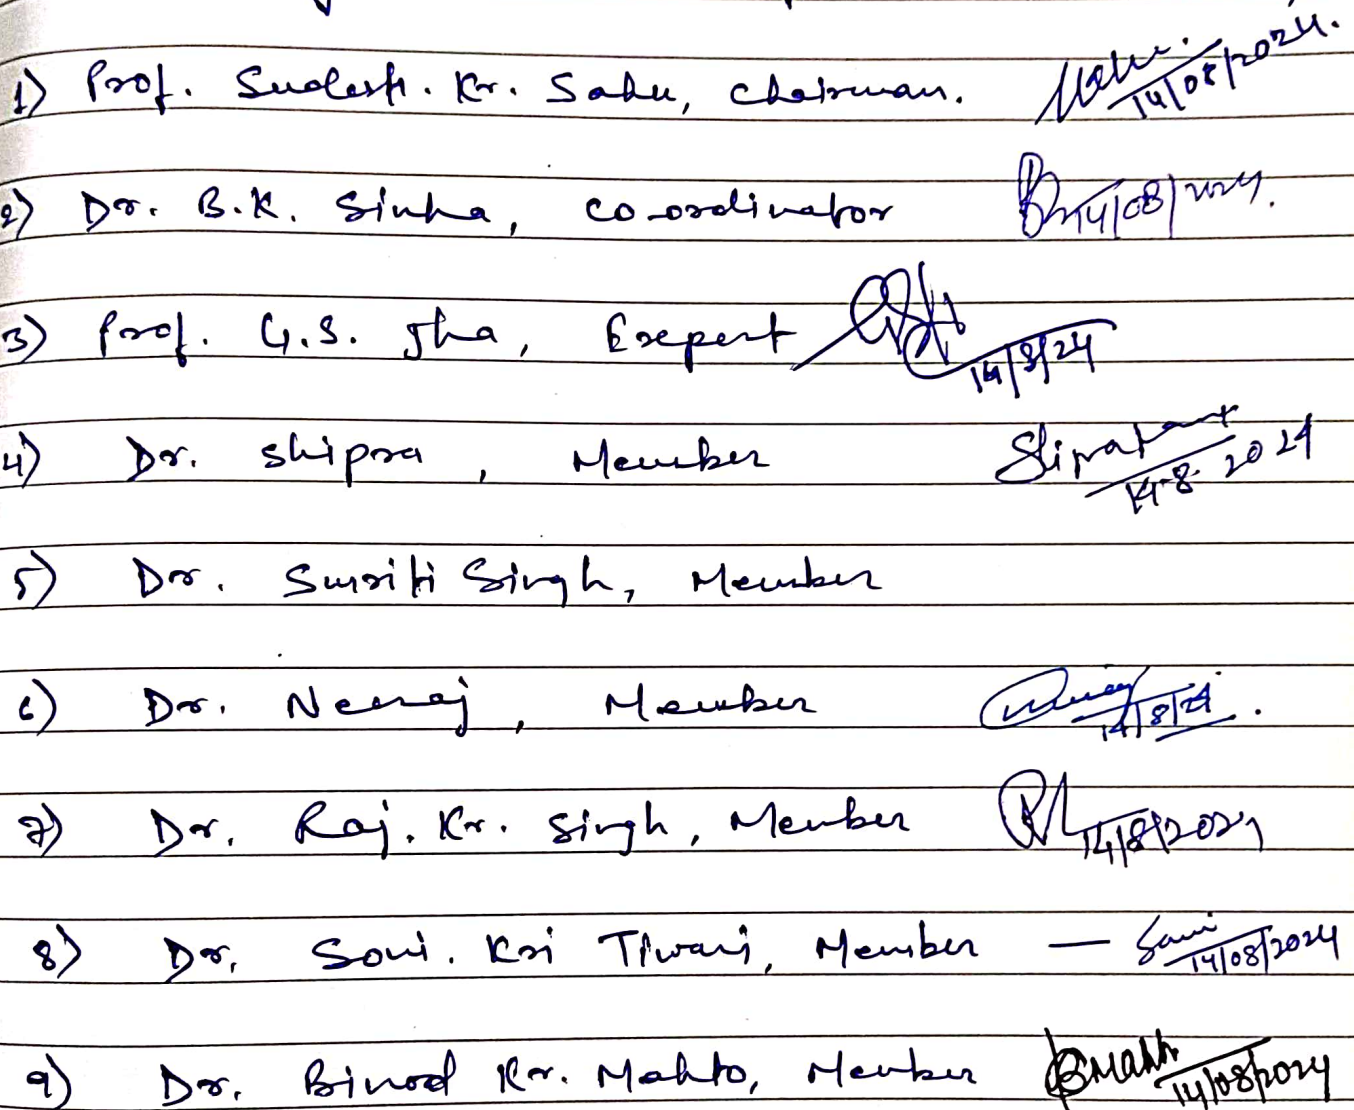 1) Prof. Sudesh. Kr. Sahu, Chairman. 14/08/2024.
2) Dr. B.K. Sinha, Co-ordinator 14/08/2024.
3) Prof. G.S. Jha, Exepert 14/8/24
4) Dr. Shipra, Member 14-8-2024
5) Dr. Smriti Singh, Member
6) Dr. Neeraj, Member 14/8/24.
7) Dr. Raj. Kr. Singh, Member 14/8/2024
8) Dr. Soni. Kri Tiwari, Member — Soni 14/08/2024
9) Dr. Binod Kr. Mahto, Member 14/08/2024